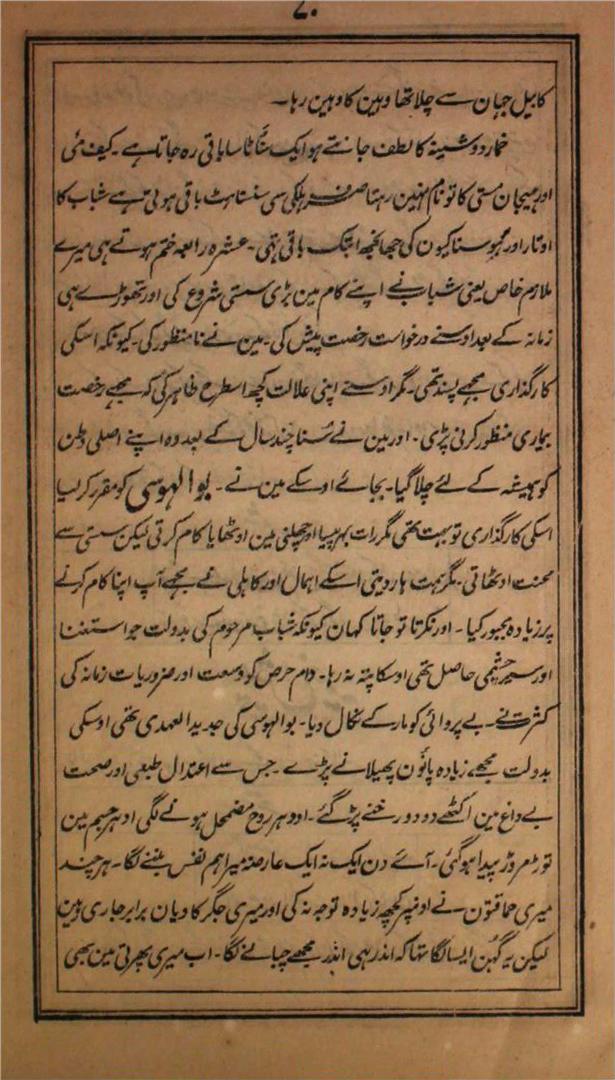 ۷۰
کا بیل جہان سے چلا تھا وہین کا وہین رہا۔
خمار دوشینہ کا لطف جانتے ہو ایک سناٹا سا باقی رہ جاتا ہے۔ کیف مئی
اور ہیجان مستی کا تو نام نہین رہتا صرف ہلکی سی سنسناہٹ باقی ہوتی ہے شباب کا
اوتار اور محبوسناکیون کی جھانجھ ابتک باقی تھی۔ عشرہ رابعہ ختم ہوتے ہی میرے
ملازم خاص یعنی شباب نے اپنے کام مین بڑی سستی شروع کی اور تھوڑے ہی
زمانہ کے بعد اوسنے درخواست رخصت پیش کی۔ مین نے نامنظور کی۔ کیونکہ اسکی
کارگذاری مجھے پسند تھی۔ مگر اوسنے اپنی علالت کچھ اسطرح ظاہر کی کہ مجھے رخصت
بیماری منظور کرنی پڑی۔ اور مین نے سنا چند سال کے بعد وہ اپنے اصلی وطن
کو ہمیشہ کے لئے چلا گیا۔ بجائے اوسکے مین نے۔ بوالہوسی کو مقرر کر لیا
اسکی کارگذاری تو بہت تھی مگر رات بھر پیسا اور چھلنی مین اوٹھایا کام کرتی لیکن سستی سے
محنت اوٹھاتی۔ مگر ہمت ہار دیتی اسکے اہمال اور کاہلی نے مجھے آپ اپنا کام کرنے
پر زیادہ مجبور کیا۔ اور نکرتا تو جاتا کہان کیونکہ شباب مرحوم کی بدولت جو استغنا
اور سیر چشمی حاصل تھی اوسکا پتہ نہ رہا۔ دام حرص کو وسعت اور ضروریات زمانہ کی
کثرت نے۔ بے پروائی کو مار کے نکال دیا۔ بوالہوسی کی جدید العہدی تھی اوسکی
بدولت مجھے زیادہ پانون پھیلانے پڑے۔ جس سے اعتدال طبعی اور صحت
بے داغ مین اکٹھے دو دو رخنے پڑ گئے۔ اودہر روح مضمحل ہونے لگی اودہر جسم مین
توڑ مروڑ پیدا ہوگئی۔ آئے دن ایک نہ ایک عارضہ میرا ہم نفس بننے لگا۔ ہر چند
میری حماقتون نے اونپر کچھ زیادہ توجہ نہ کی اور میری جگر کاویان برابر جاری رہین
لیکن یہ گہن ایسا لگا تہا کہ اندر ہی اندر مجھے چبانے لگا۔ اب میری پھرتی مین بھی